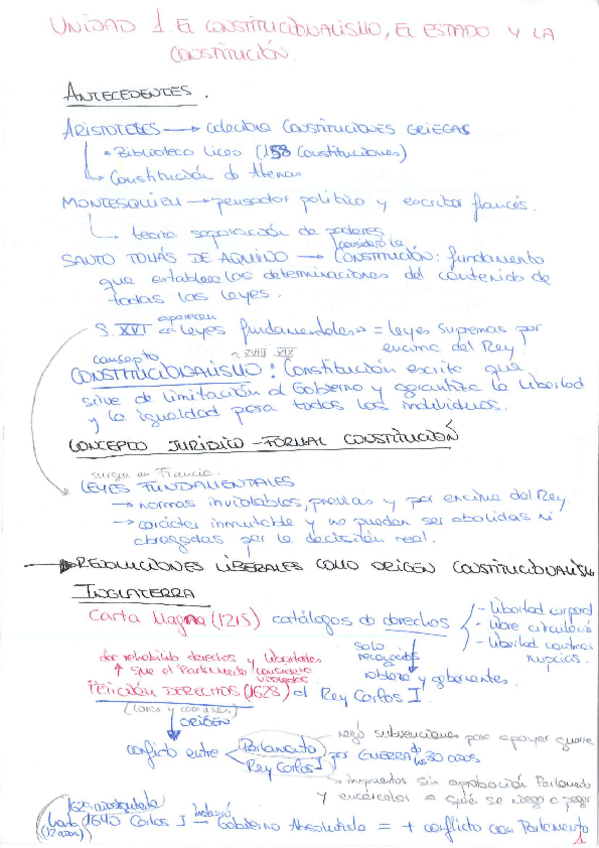 UNIDAD 1. EL CONSTITUCIONALISMO, EL ESTADO Y LA
CONSTITUCIÓN.
ANTECEDENTES.
ARISTOTELES → colectora CONSTITUCIONES GRIEGAS
• Biblioteca Liceo (158 Constituciones)
↳ Constitución de Atenas
MONTESQUIEU → pensador político y escritor francés.
↳ teoria separación de poderes
considera la
SANTO TOMÁS DE AQUINO → CONSTITUCIÓN: fundamento
que establece las determinaciones del contenido de
todas las leyes.
aparecen
S. XVI → «leyes fundamentales» = leyes supremas por
encima del Rey.
concepto s. XVIII XIX
CONSTITUCIONALISMO: Constitución escrita que
sirve de limitación al Gobierno y garantiza la libertad
y la igualdad para todos los individuos.
CONCEPTO JURÍDICO-FORMAL CONSTITUCIÓN
surge en Francia.
LEYES FUNDAMENTALES
→ normas inviolables, previas y por encima del Rey.
→ carácter inmutable y no pueden ser abolidas ni
abrogadas por la decisión real.
→ REVOLUCIONES LIBERALES COMO ORIGEN CONSTITUCIONALISMO
INGLATERRA
Carta Magna (1215) catálogos de derechos
- libertad corporal
- libre circulación
- libertad contraer
nupcias.
solo
recogidos
nobleza y gobernantes.
de derechos y libertades
↑ que el Parlamento
PETICIÓN DERECHOS (1628) al Rey Carlos I.
(lores y comunes)
ORIGEN
conflicto entre Parlamento
Rey Carlos I
por GUERRA de los 30 años
negó subvenciones para apoyar guerra
impuestos sin aprobación Parlamento
y encarceló a quien se niega a pagar
1629
hasta 1640 Carlos I Instauró → Gobierno Absolutista = + conflicto con Parlamento
1